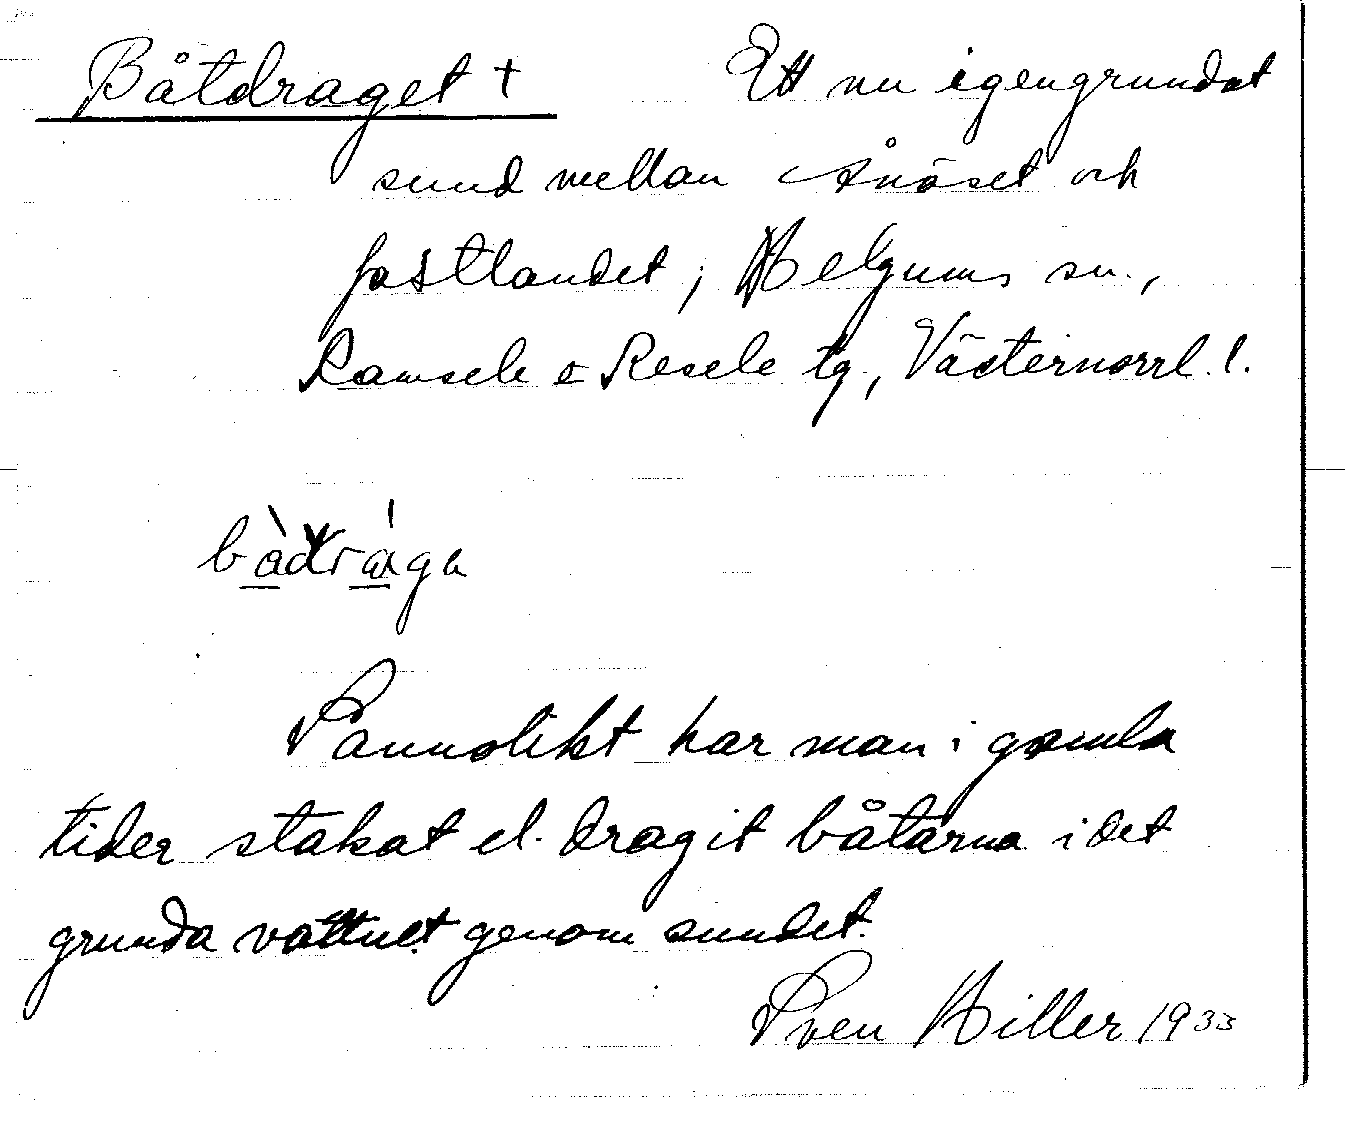 Båtdraget † Ett nu igengrundat
sund mellan Ånäset och
fastlandet, Helgums sn.,
Ramsele o Resele tg, Västernorrl. l.
bàdrága
Sannolikt har man i gamla
tider stakat el. dragit båtarna i det
grunda vattnet genom sundet.
Sven Hiller 1933